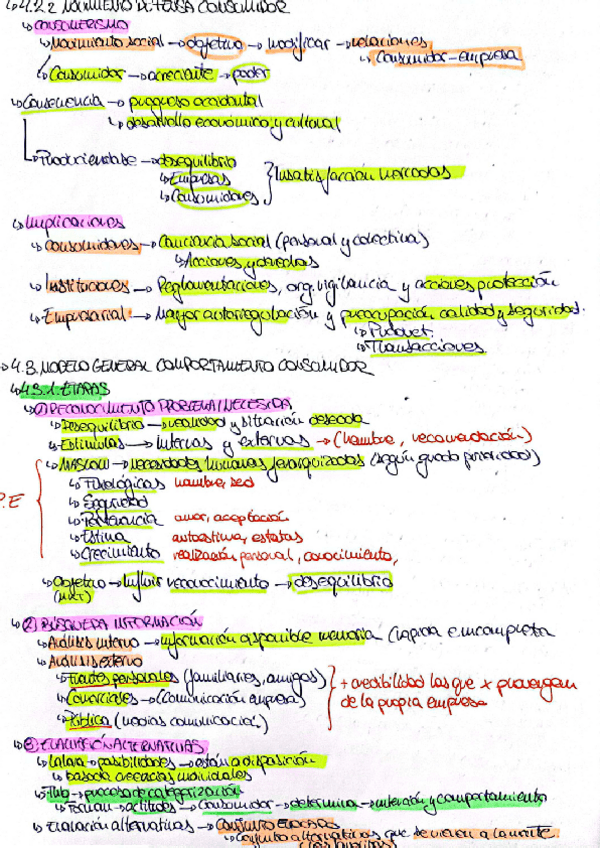 ↳4.2.2 MOVIMIENTO DEFENSA CONSUMIDOR
↳CONSUMERISMO
↳Movimiento social → objetivo → modificar → relaciones
↳Consumidor-empresa
↳Consumidor → acreciante → poder
↳Consecuencia → progreso occidental
↳desarrollo económico y cultural
↳Produciendose → desequilibrio
↳Empresas
↳Consumidores
} Insatisfacción mercados
↳Implicaciones
↳Consumidores → Conciencia social (personal y colectiva)
↳Acciones y derechos
↳Instituciones → Reglamentaciones, org. vigilancia y acciones protección
↳Empresarial → Mayor autorregulación y preocupación calidad y seguridad.
↳Product.
↳Transacciones
→4.3. MODELO GENERAL COMPORTAMIENTO CONSUMIDOR
↳4.3.1. ETAPAS
↳① RECONOCIMIENTO PROBLEMA/NECESIDA
↳Desequilibrio → realidad y situación deseada
↳Estimulos → internos y externos → (hambre, recomendación)
↳MASLOW → necesidades humanas jerarquizadas (según grado prioridad)
↳Fisiológicas hambre, sed
↳Seguridad
↳Pertenencia amor, aceptación
↳Estima autoestima, estatus
↳Crecimiento realización personal, conocimiento,
P.E
↳Objetivo → Influir reconocimiento → desequilibrio
(MKT)
↳② BÚSQUEDA INFORMACIÓN
↳Análisis interno → información disponible memoria (rápida e incompleta
↳Análisis externo
↳Fuentes personales (familiares, amigos)
↳Comerciales → (Comunicación empresa)
↳Pública (medios comunicación)
} + credibilidad las que x provengan
de la propia empresa
↳③ EVALUACIÓN ALTERNATIVAS
↳Valora → posibilidades → están a disposición
↳basada creencias individuales
↳proceso de categorización
↳Forman → actitudes → consumidor → determina → intención y comportamiento
↳Evaluación alternativas → CONJUNTO EVOCADO
↳Conjunto alternativas que se vienen a la mente